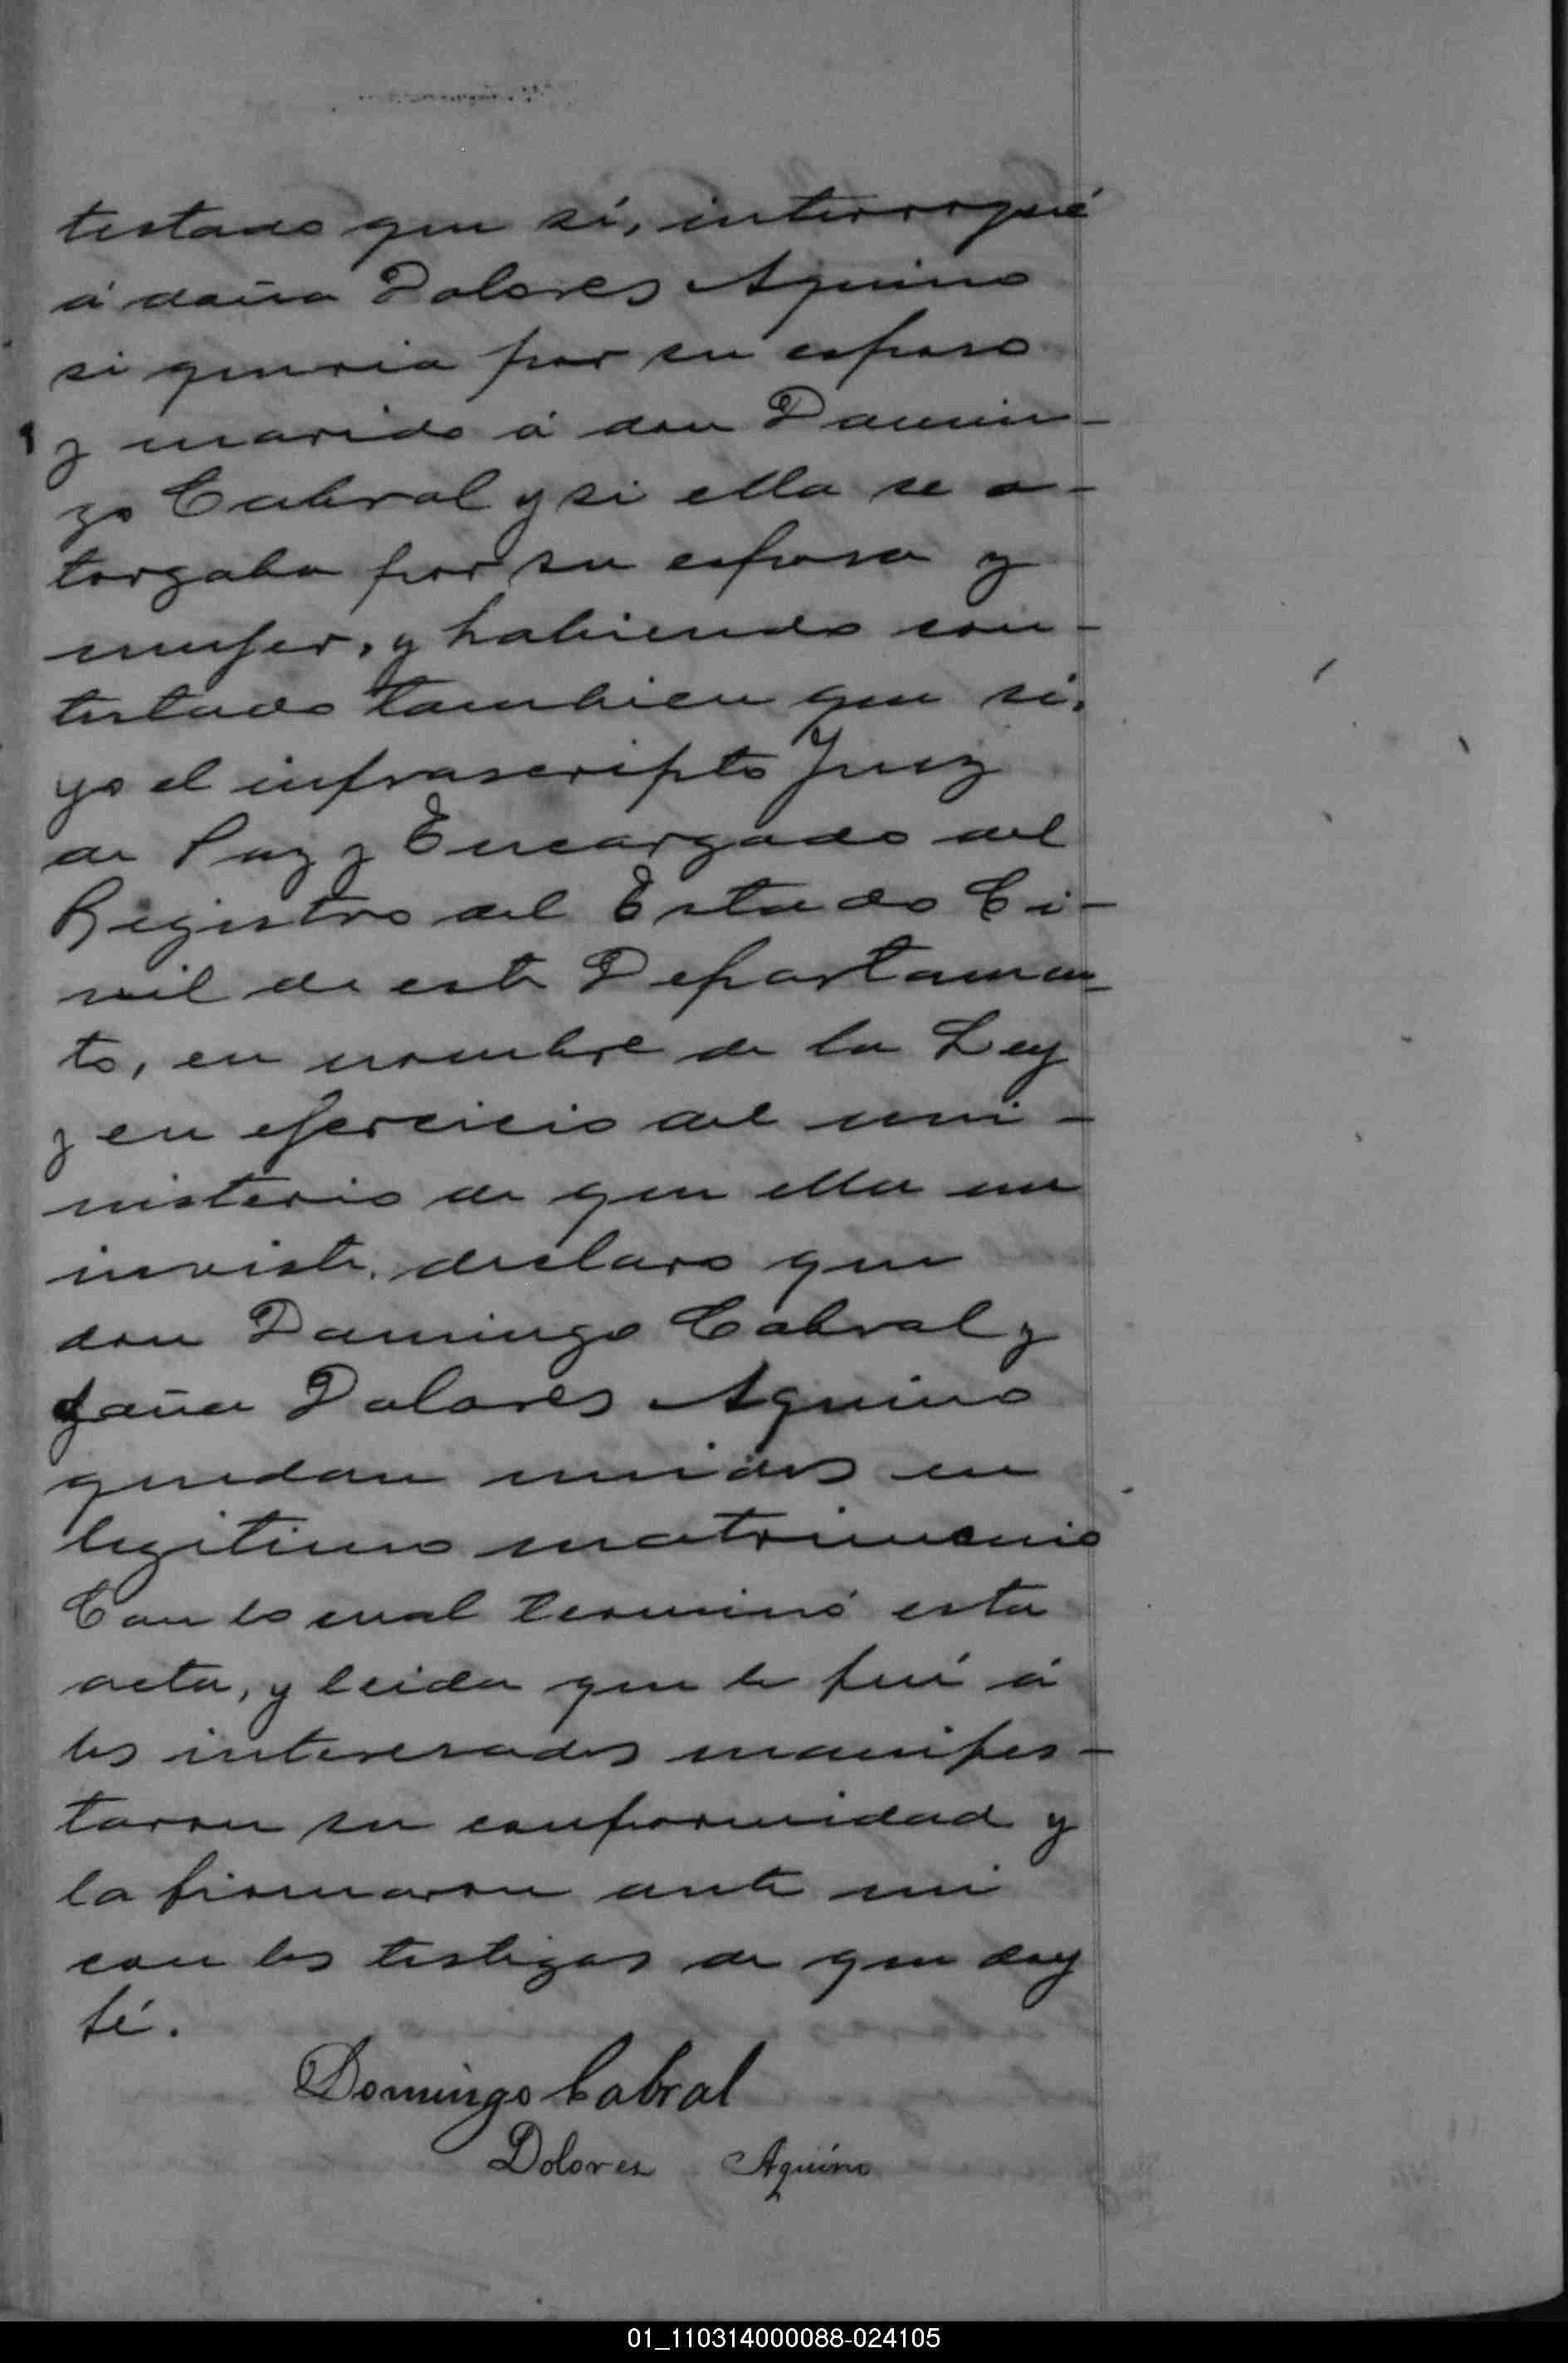 testado que sí, interrogué
á doña Dolores Aquino
si queria por su esposo
y marido á don Domin-
go Cabral y si ella se o-
torgaba por su esposa y
mujer, y habiendo con-
testado tambien que sí,
yo el infrascripto Juez
de Paz y Encargado del
Registro del Estado Ci-
vil de este Departamen-
to, en nombre de la Ley
y en ejercicio del mi-
nisterio de que ella me
inviste, declaro que
don Domingo Cabral y
doña Dolores Aquino
quedan unidos en
legitimo matrimonio
Con lo cual terminó esta
acta, y leida que le fué á
los interesados manifes-
taron su conformidad y
la firmaron ante mi
con los testigos de que doy
fé.
Domingo Cabral
Dolores Aquino
01_110314000088-024105